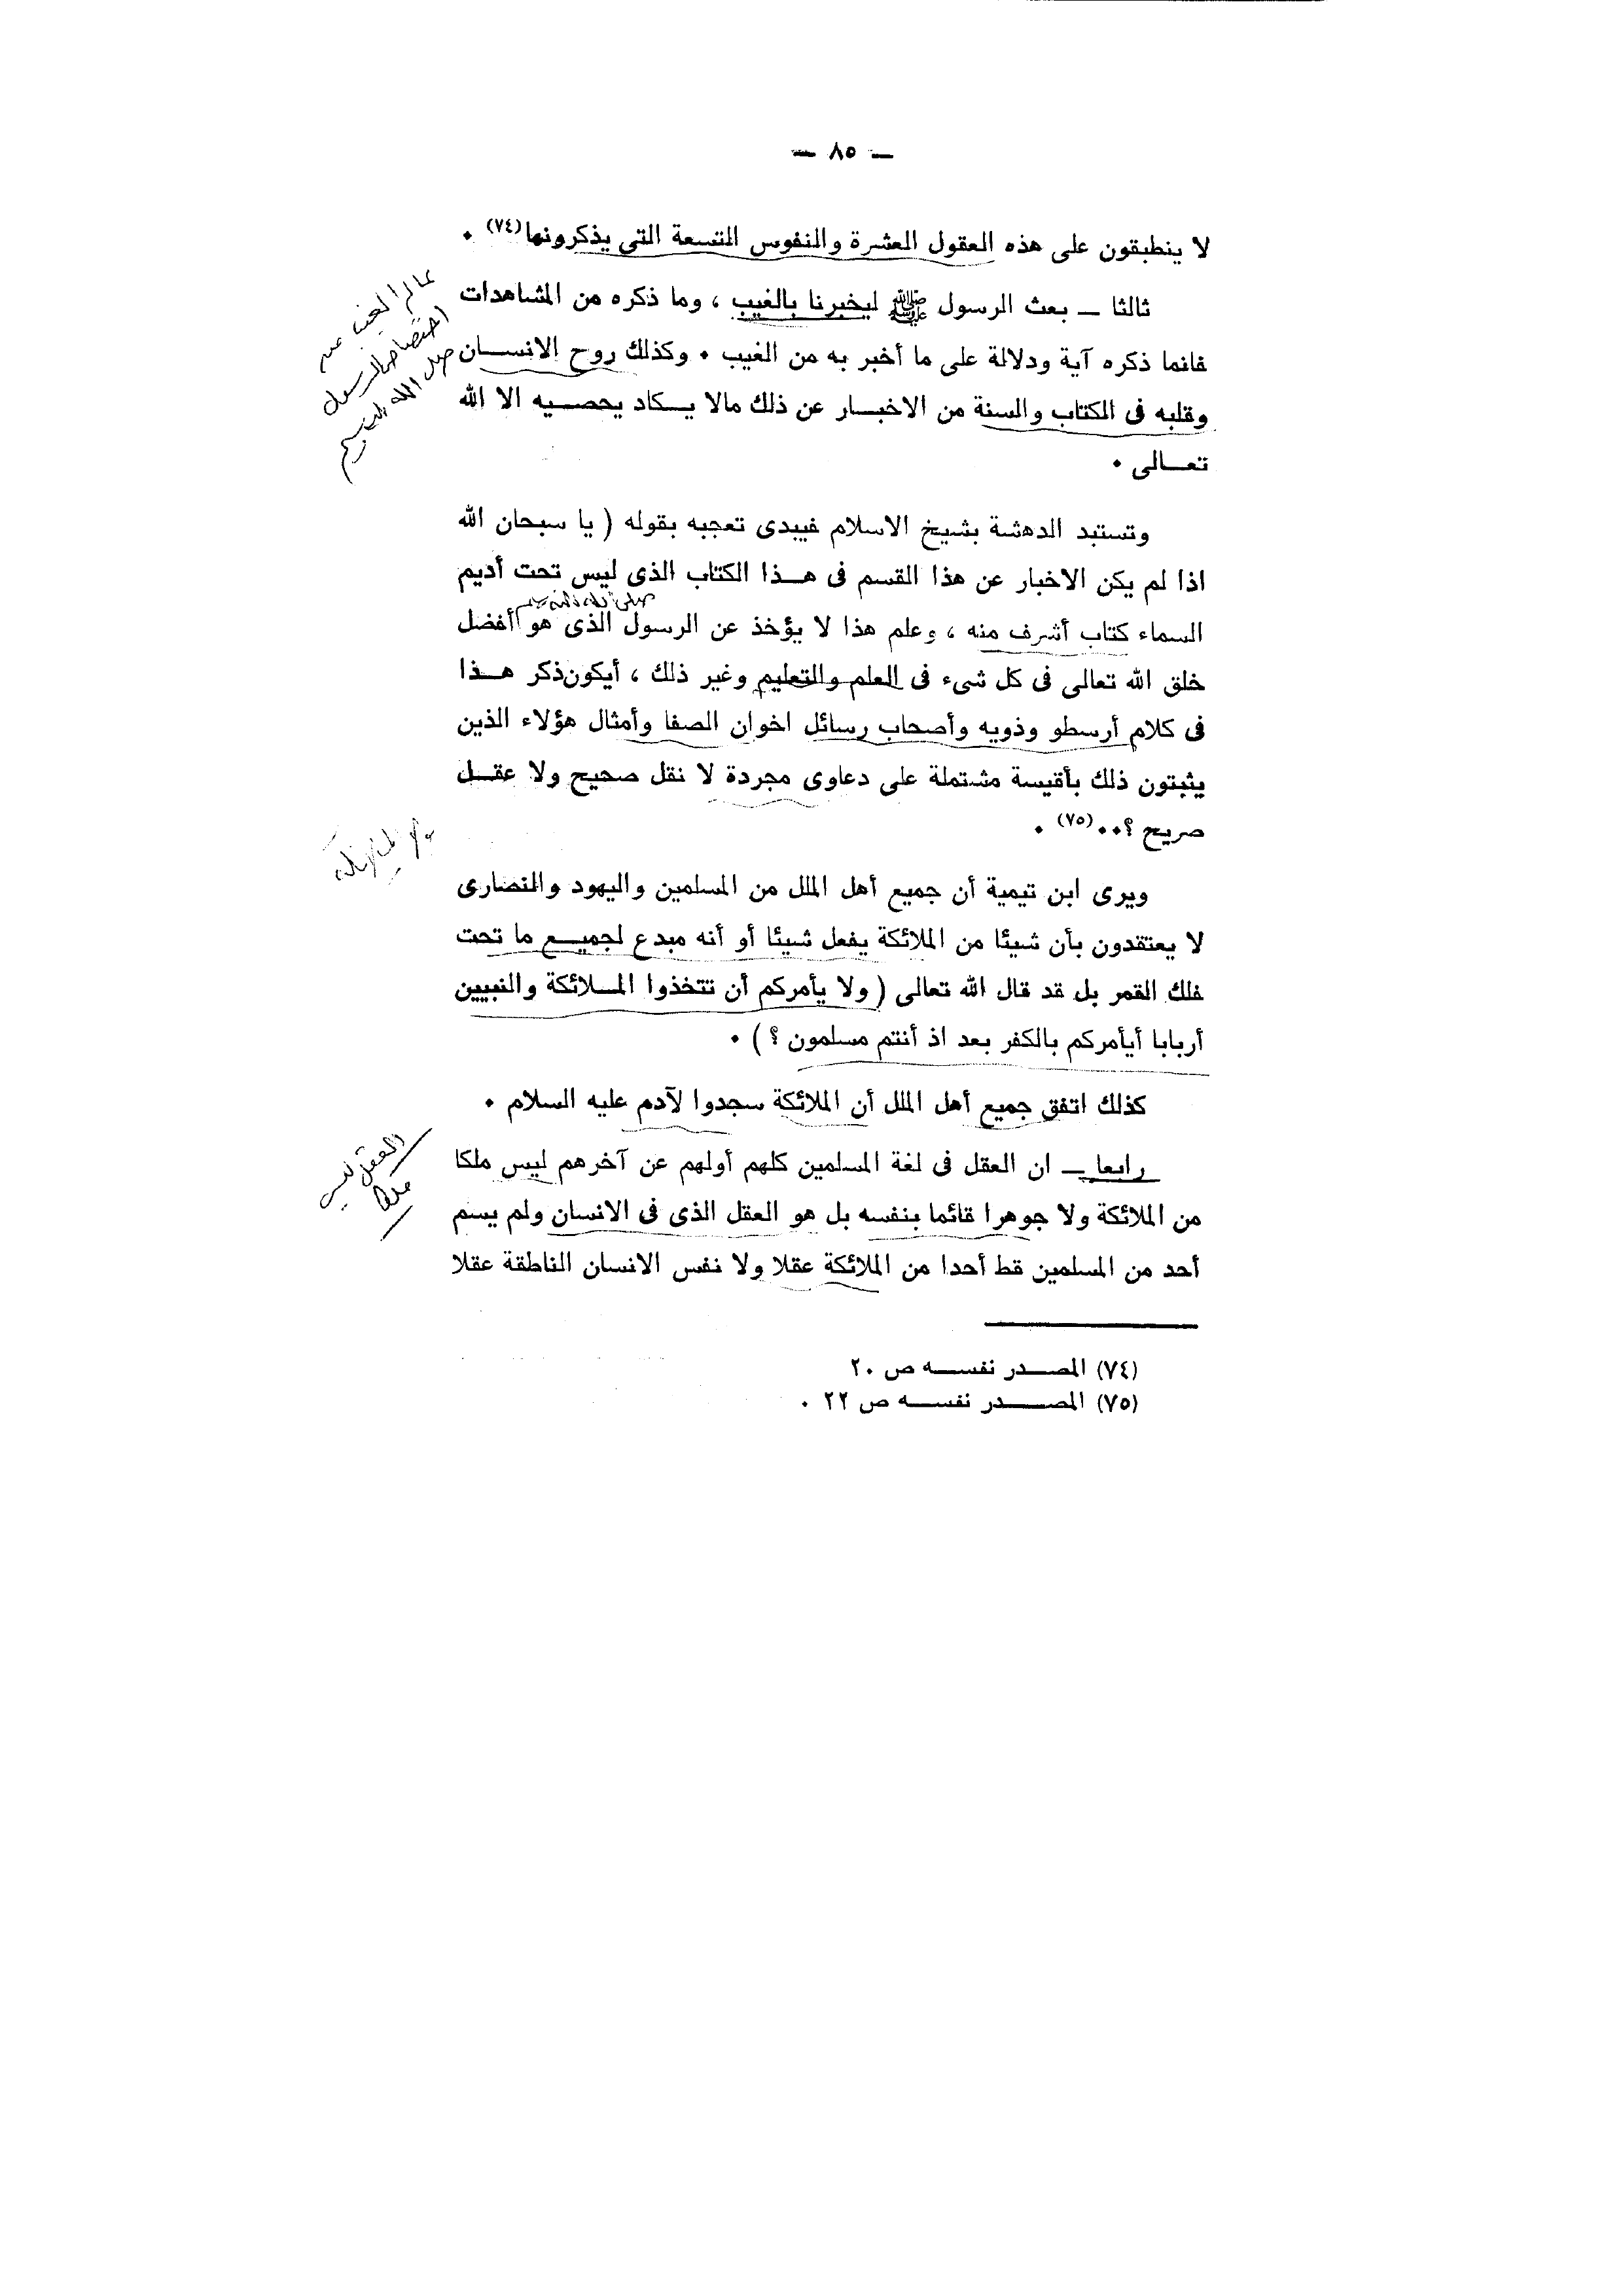 — ٨٥ —
لا ينطبقون على هذه العقول العشرة والنفوس التسعة التى يذكرونها(٧٤) •
ثالثا — بعث الرسول ﷺ ليخبرنا بالغيب ، وما ذكره من المشاهدات
فانما ذكره آية ودلالة على ما أخبر به من الغيب • وكذلك روح الانسان
وقلبه فى الكتاب والسنة من الاخبار عن ذلك مالا يكاد يحصيه الا الله
تعالى •
عالم الغيب من
اختصاص الرسول
صلى الله عليه وسلم
وتستبد الدهشة بشيخ الاسلام فيبدى تعجبه بقوله ( يا سبحان الله
اذا لم يكن الاخبار عن هذا القسم فى هذا الكتاب الذى ليس تحت أديم
صلى الله عليه وسلم
السماء كتاب أشرف منه ، وعلم هذا لا يؤخذ عن الرسول الذى هو أفضل
خلق الله تعالى فى كل شىء فى العلم والتعليم وغير ذلك ، أيكون ذكر هذا
فى كلام أرسطو وذويه وأصحاب رسائل اخوان الصفا وأمثال هؤلاء الذين
يثبتون ذلك بأقيسة مشتملة على دعاوى مجردة لا نقل صحيح ولا عقل
صريح ؟••(٧٥) •
ويرى ابن تيمية أن جميع أهل الملل من المسلمين واليهود والنصارى
لا يعتقدون بأن شيئا من الملائكة يفعل شيئا أو أنه مبدع لجميع ما تحت
فلك القمر بل قد قال الله تعالى ( ولا يأمركم أن تتخذوا الملائكة والنبيين
أربابا أيأمركم بالكفر بعد اذ أنتم مسلمون ؟ ) •
كذلك اتفق جميع أهل الملل أن الملائكة سجدوا لآدم عليه السلام •
رابعا — ان العقل فى لغة المسلمين كلهم أولهم عن آخرهم ليس ملكا
من الملائكة ولا جوهرا قائما بنفسه بل هو العقل الذى فى الانسان ولم يسم
أحد من المسلمين قط أحدا من الملائكة عقلا ولا نفس الانسان الناطقة عقلا
العقل ليس
ملكا
(٧٤) المصدر نفسه ص ٢٠
(٧٥) المصدر نفسه ص ٢٢ •